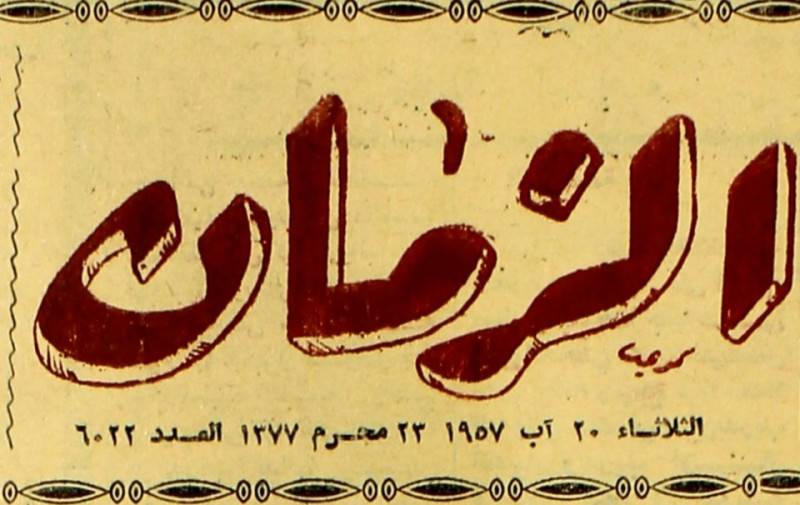 الزمان
الثلاثاء ٢٠ آب ١٩٥٧ ٢٣ محرم ١٣٧٧ العدد ٦٠٢٢